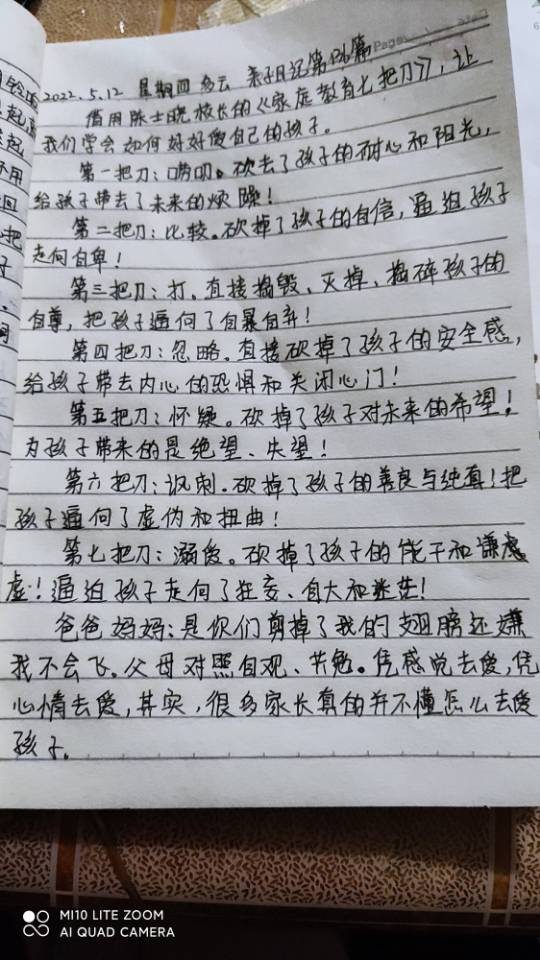 2022.5.12 星期四 多云 亲子日记第136篇
借用陈士晓校长的《家庭教育七把刀》，让
我们学会如何好好爱自己的孩子。
第一把刀：唠叨。砍去了孩子的耐心和阳光，
给孩子带去了未来的烦躁！
第二把刀：比较。砍掉了孩子的自信，逼迫孩子
走向自卑！
第三把刀：打。直接捣毁、灭掉、捣碎孩子的
自尊，把孩子逼向了自暴自弃！
第四把刀：忽略。直接砍掉了孩子的安全感，
给孩子带去内心的恐惧和关闭心门！
第五把刀：怀疑。砍掉了孩子对未来的希望！
为孩子带来的是绝望、失望！
第六把刀：讽刺。砍掉了孩子的善良与纯真！把
孩子逼向了虚伪和扭曲！
第七把刀：溺爱。砍掉了孩子的能干和谦
虚！逼迫孩子走向了狂妄、自大和迷茫！
爸爸妈妈：是你们剪掉了我的翅膀还嫌
我不会飞。父母对照自观、共勉。凭感觉去爱，凭
心情去爱，其实，很多家长真的并不懂怎么去爱
孩子。
MI10 LITE ZOOM
AI QUAD CAMERA